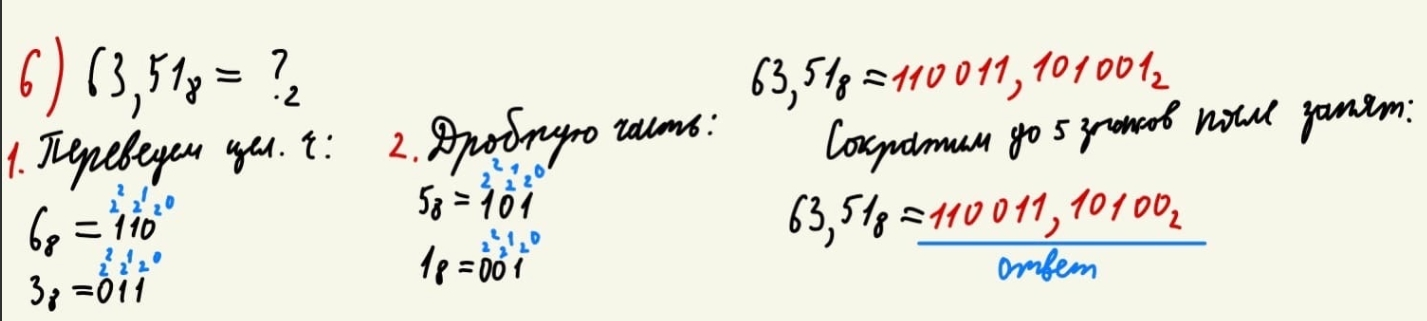 6) 63,51₈ = ?₂
1. Переведем цел. ч:
2² 2¹ 2⁰
6₈ = 110
2² 2¹ 2⁰
3₈ = 011
2. Дробную часть:
2² 2¹ 2⁰
5₈ = 101
2² 2¹ 2⁰
1₈ = 001
63,51₈ = 110 011, 101 001₂
Сократим до 5 знаков после запят:
63,51₈ = 110 011, 101 00₂
ответ